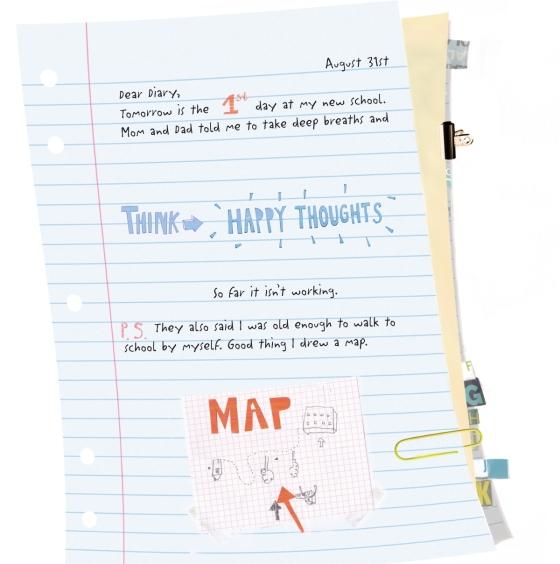 August 31st
Dear Diary,
Tomorrow is the 1st day at my new school.
Mom and Dad told me to take deep breaths and
THINK HAPPY THOUGHTS
So far it isn't working.
P.S. They also said I was old enough to walk to
school by myself. Good thing I drew a map.
MAP
F
G
J
K